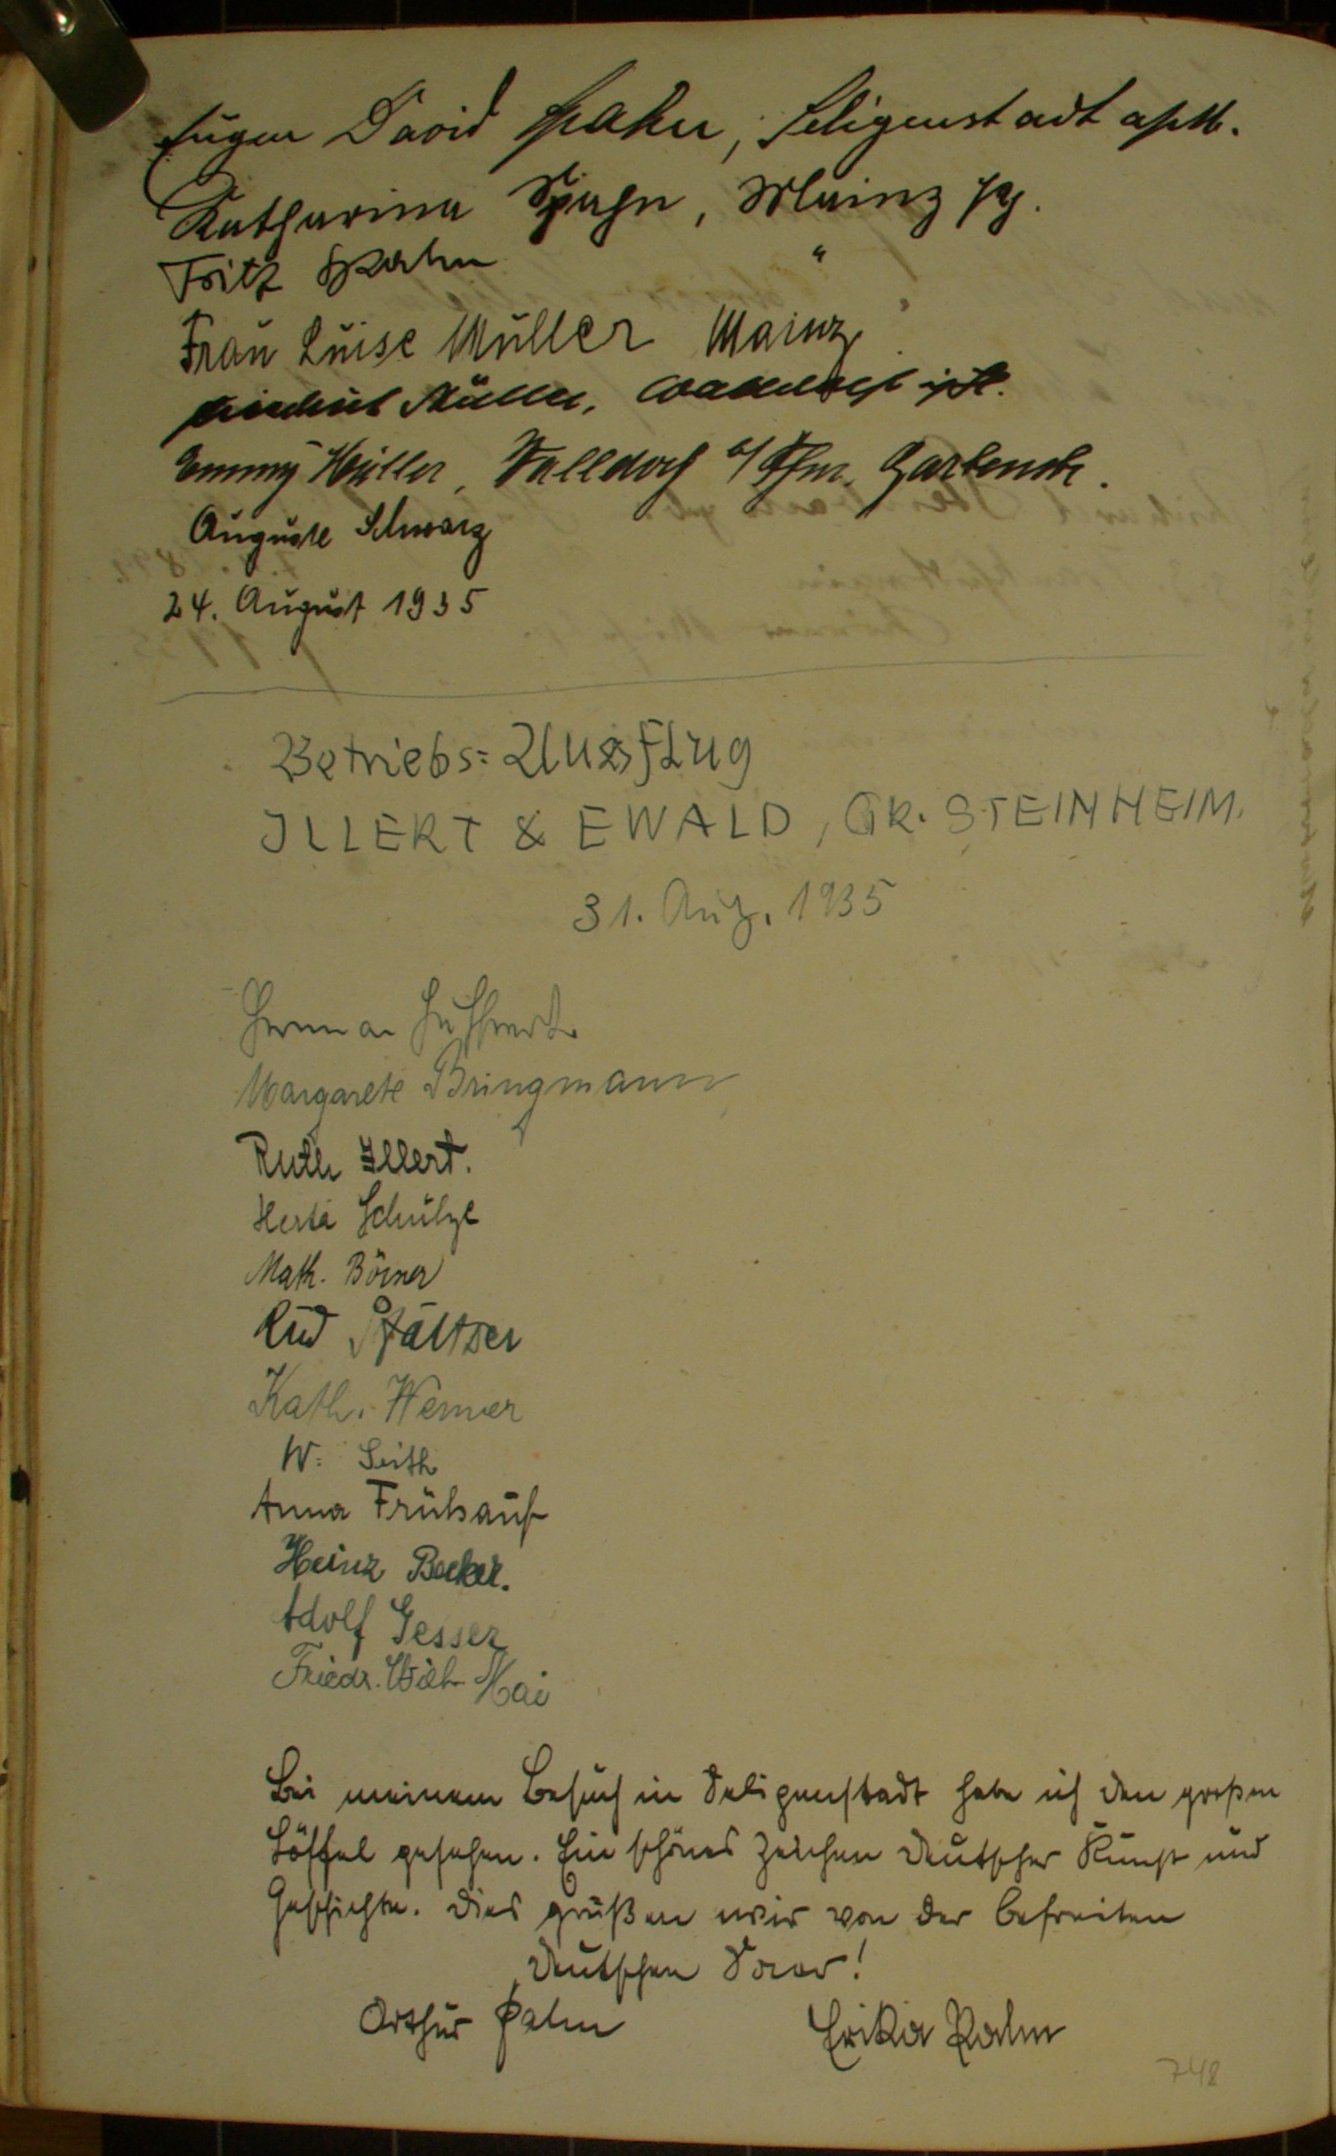 Eugen David Spahn, Seligenstadt
Katharina Spahn, Mainz
Fritz Spahn "
Frau Luise Müller Mainz
Müller, Walldorf
Emmy Müller, Walldorf b/Ffm. Gartenstr.
Auguste Schwarz
24. August 1935
Betriebs=Ausflug
ILLERT & EWALD, GR. STEINHEIM.
31. Aug. 1935
Herman
Margarete Bringmann
Ruth Illert.
Herta Schulze
Math. Börner
Rud Pfältzer
Kath. Werner
W. Seith
Anna Frühauf
Heinz Becker.
Adolf Gesser
Friedr. Wilh. Mai
Bei meinem Besuch in Seligenstadt habe ich den großen
Löffel gesehen. Ein schönes Zeichen deutscher Kunst und
Geschichte. Dies grüßen wir von der befreiten
deutschen Saar!
Arthur Palm Erika Palm
748